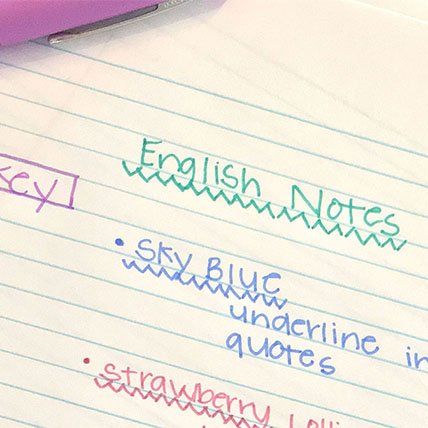 key
English Notes
• Sky Blue
underline in
quotes
• strawberry